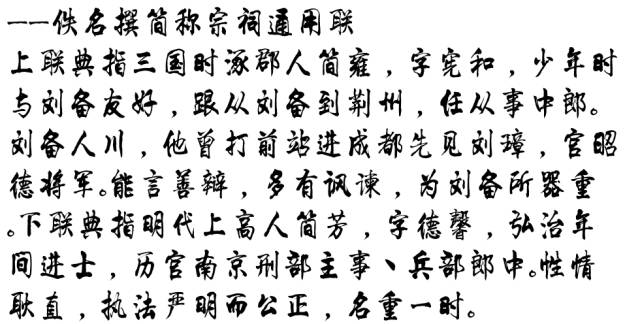 ——佚名撰简称宗祠通用联
上联典指三国时涿郡人简雍，字宪和，少年时
与刘备友好，跟从刘备到荆州，任从事中郎。
刘备人川，他曾打前站进成都先见刘璋，官昭
德将军。能言善辩，多有讽谏，为刘备所器重
。下联典指明代上高人简芳，字德馨，弘治年
间进士，历官南京刑部主事、兵部郎中。性情
耿直，执法严明而公正，名重一时。